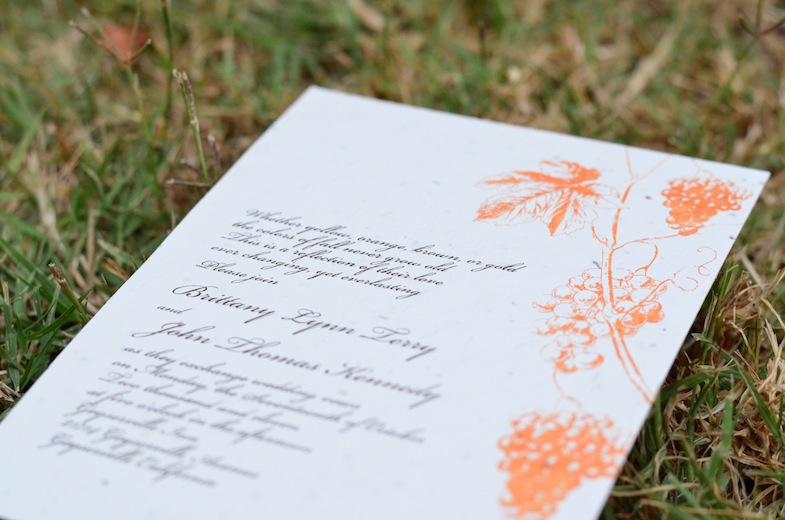 Whether yellow, orange, brown, or gold
the colors of fall never grow old
This is a reflection of their love
ever changing yet everlasting
Please join
Brittany Lynn Terry
and
John Thomas Kennedy
as they exchange wedding vows
on Monday, the of October
Two thousand and
at five o'clock in the afternoon
Geyserville Inn
Geyserville Avenue
Geyserville California